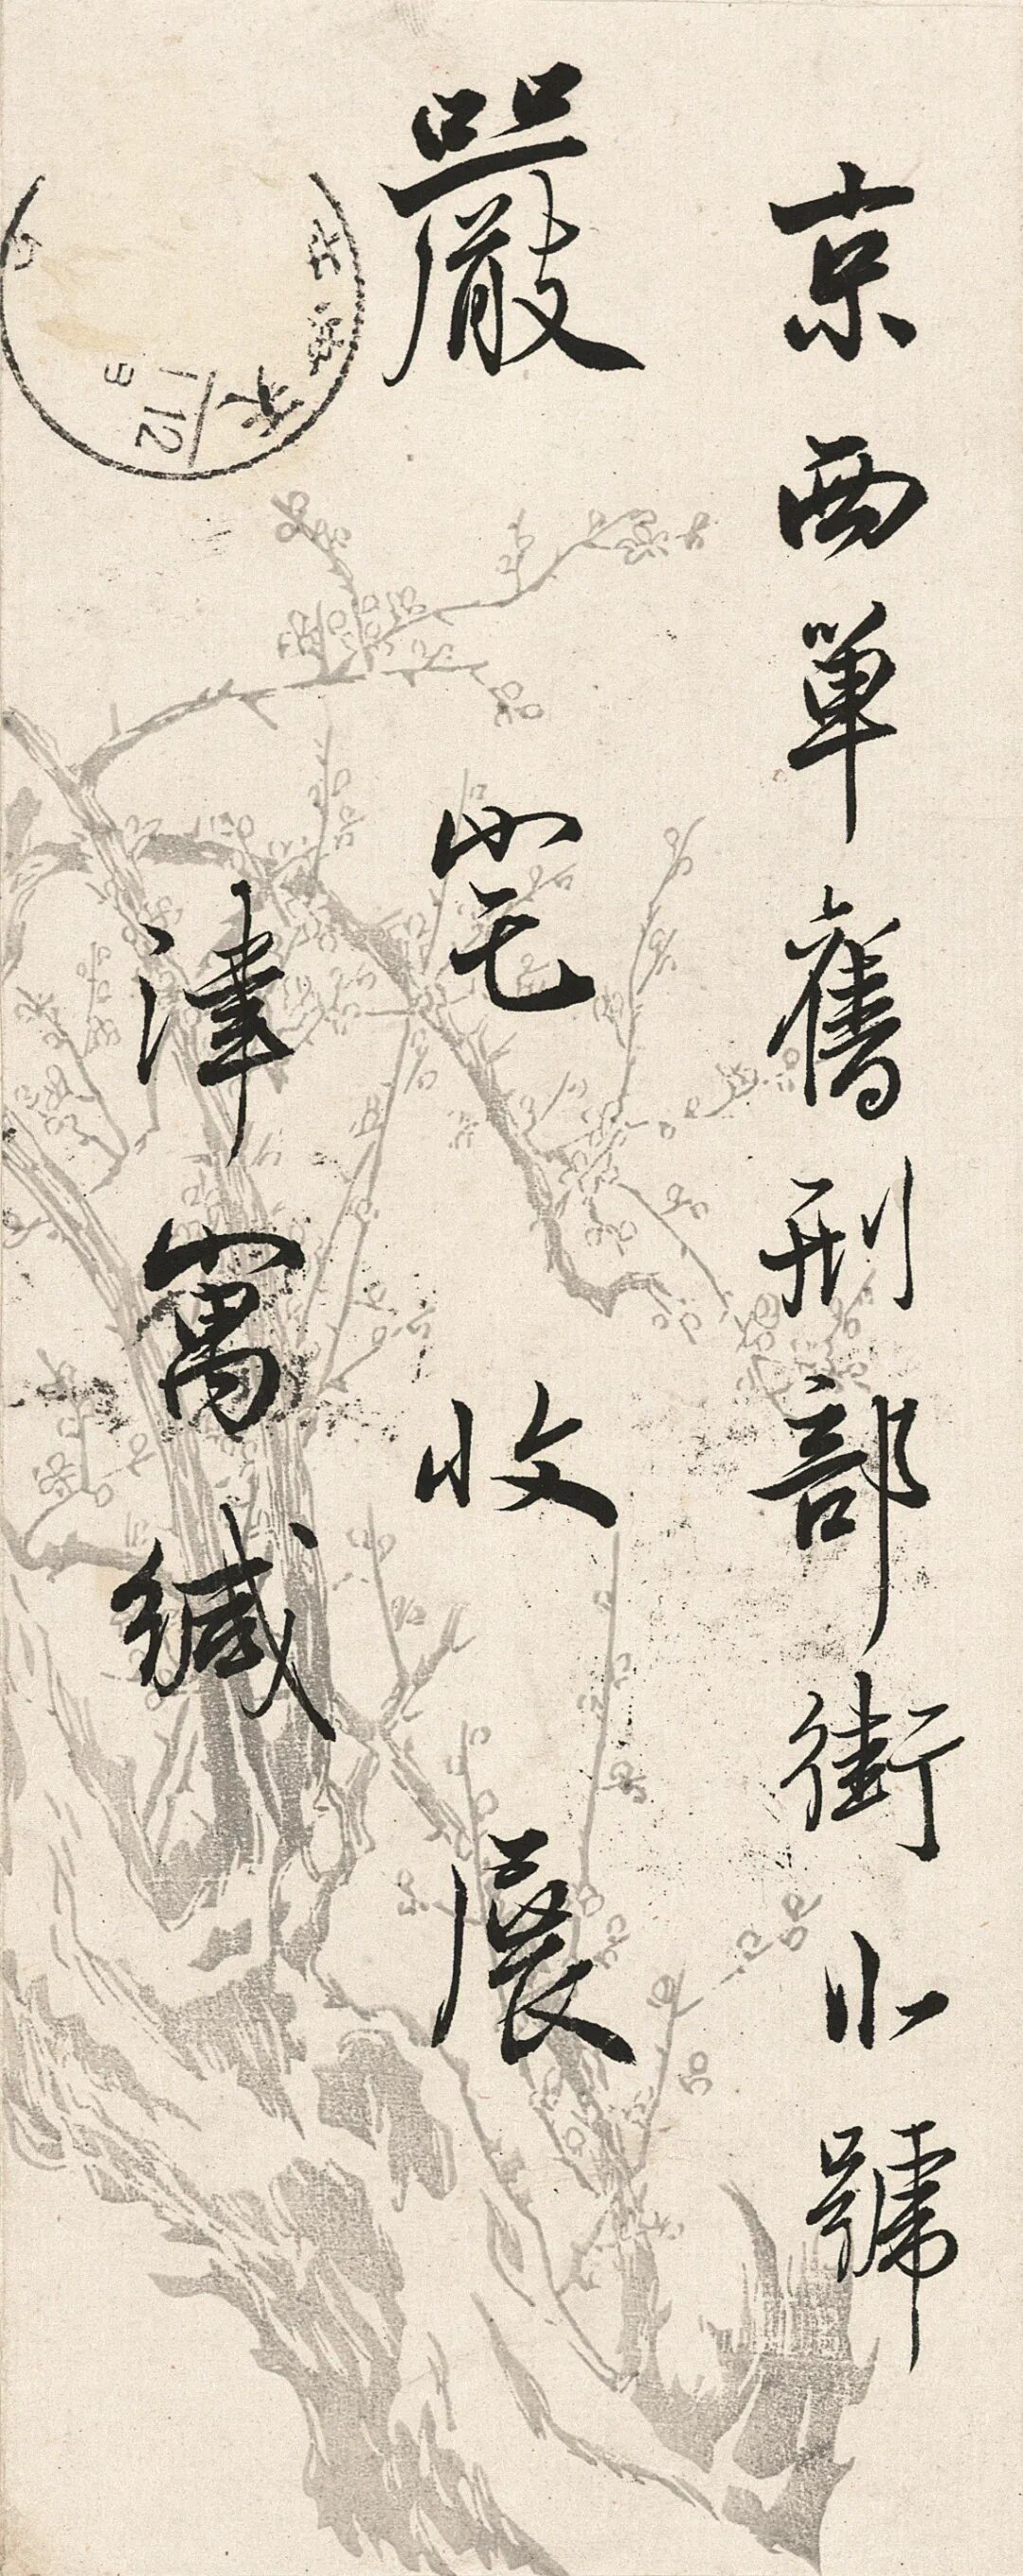 京西單舊刑部街號
嚴宅收展
津寓緘
12